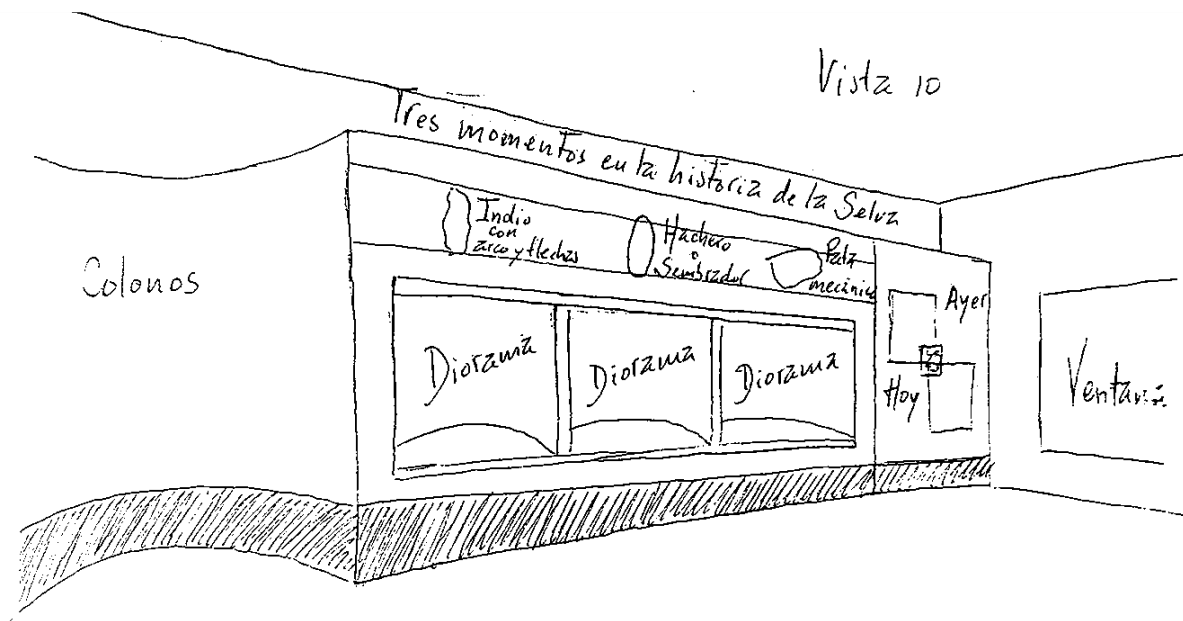 Vista 10
Tres momentos en la historia de la Selva
Indio
con
arco y flechas
Hachero
o
Sembrador
Pala
mecánica
Colonos
Diorama
Diorama
Diorama
Ayer
Hoy
Ventana